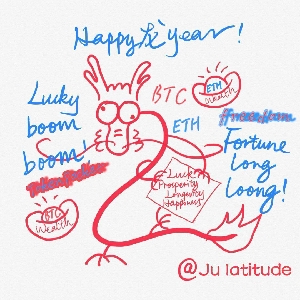 Happy 龙 year!
Lucky
boom
boom
BTC
ETH
ETH
Wealth
Fortune
Long
loong!
BTC
Wealth
Luck
Prosperity
Longevity
Happiness
@Ju latitude